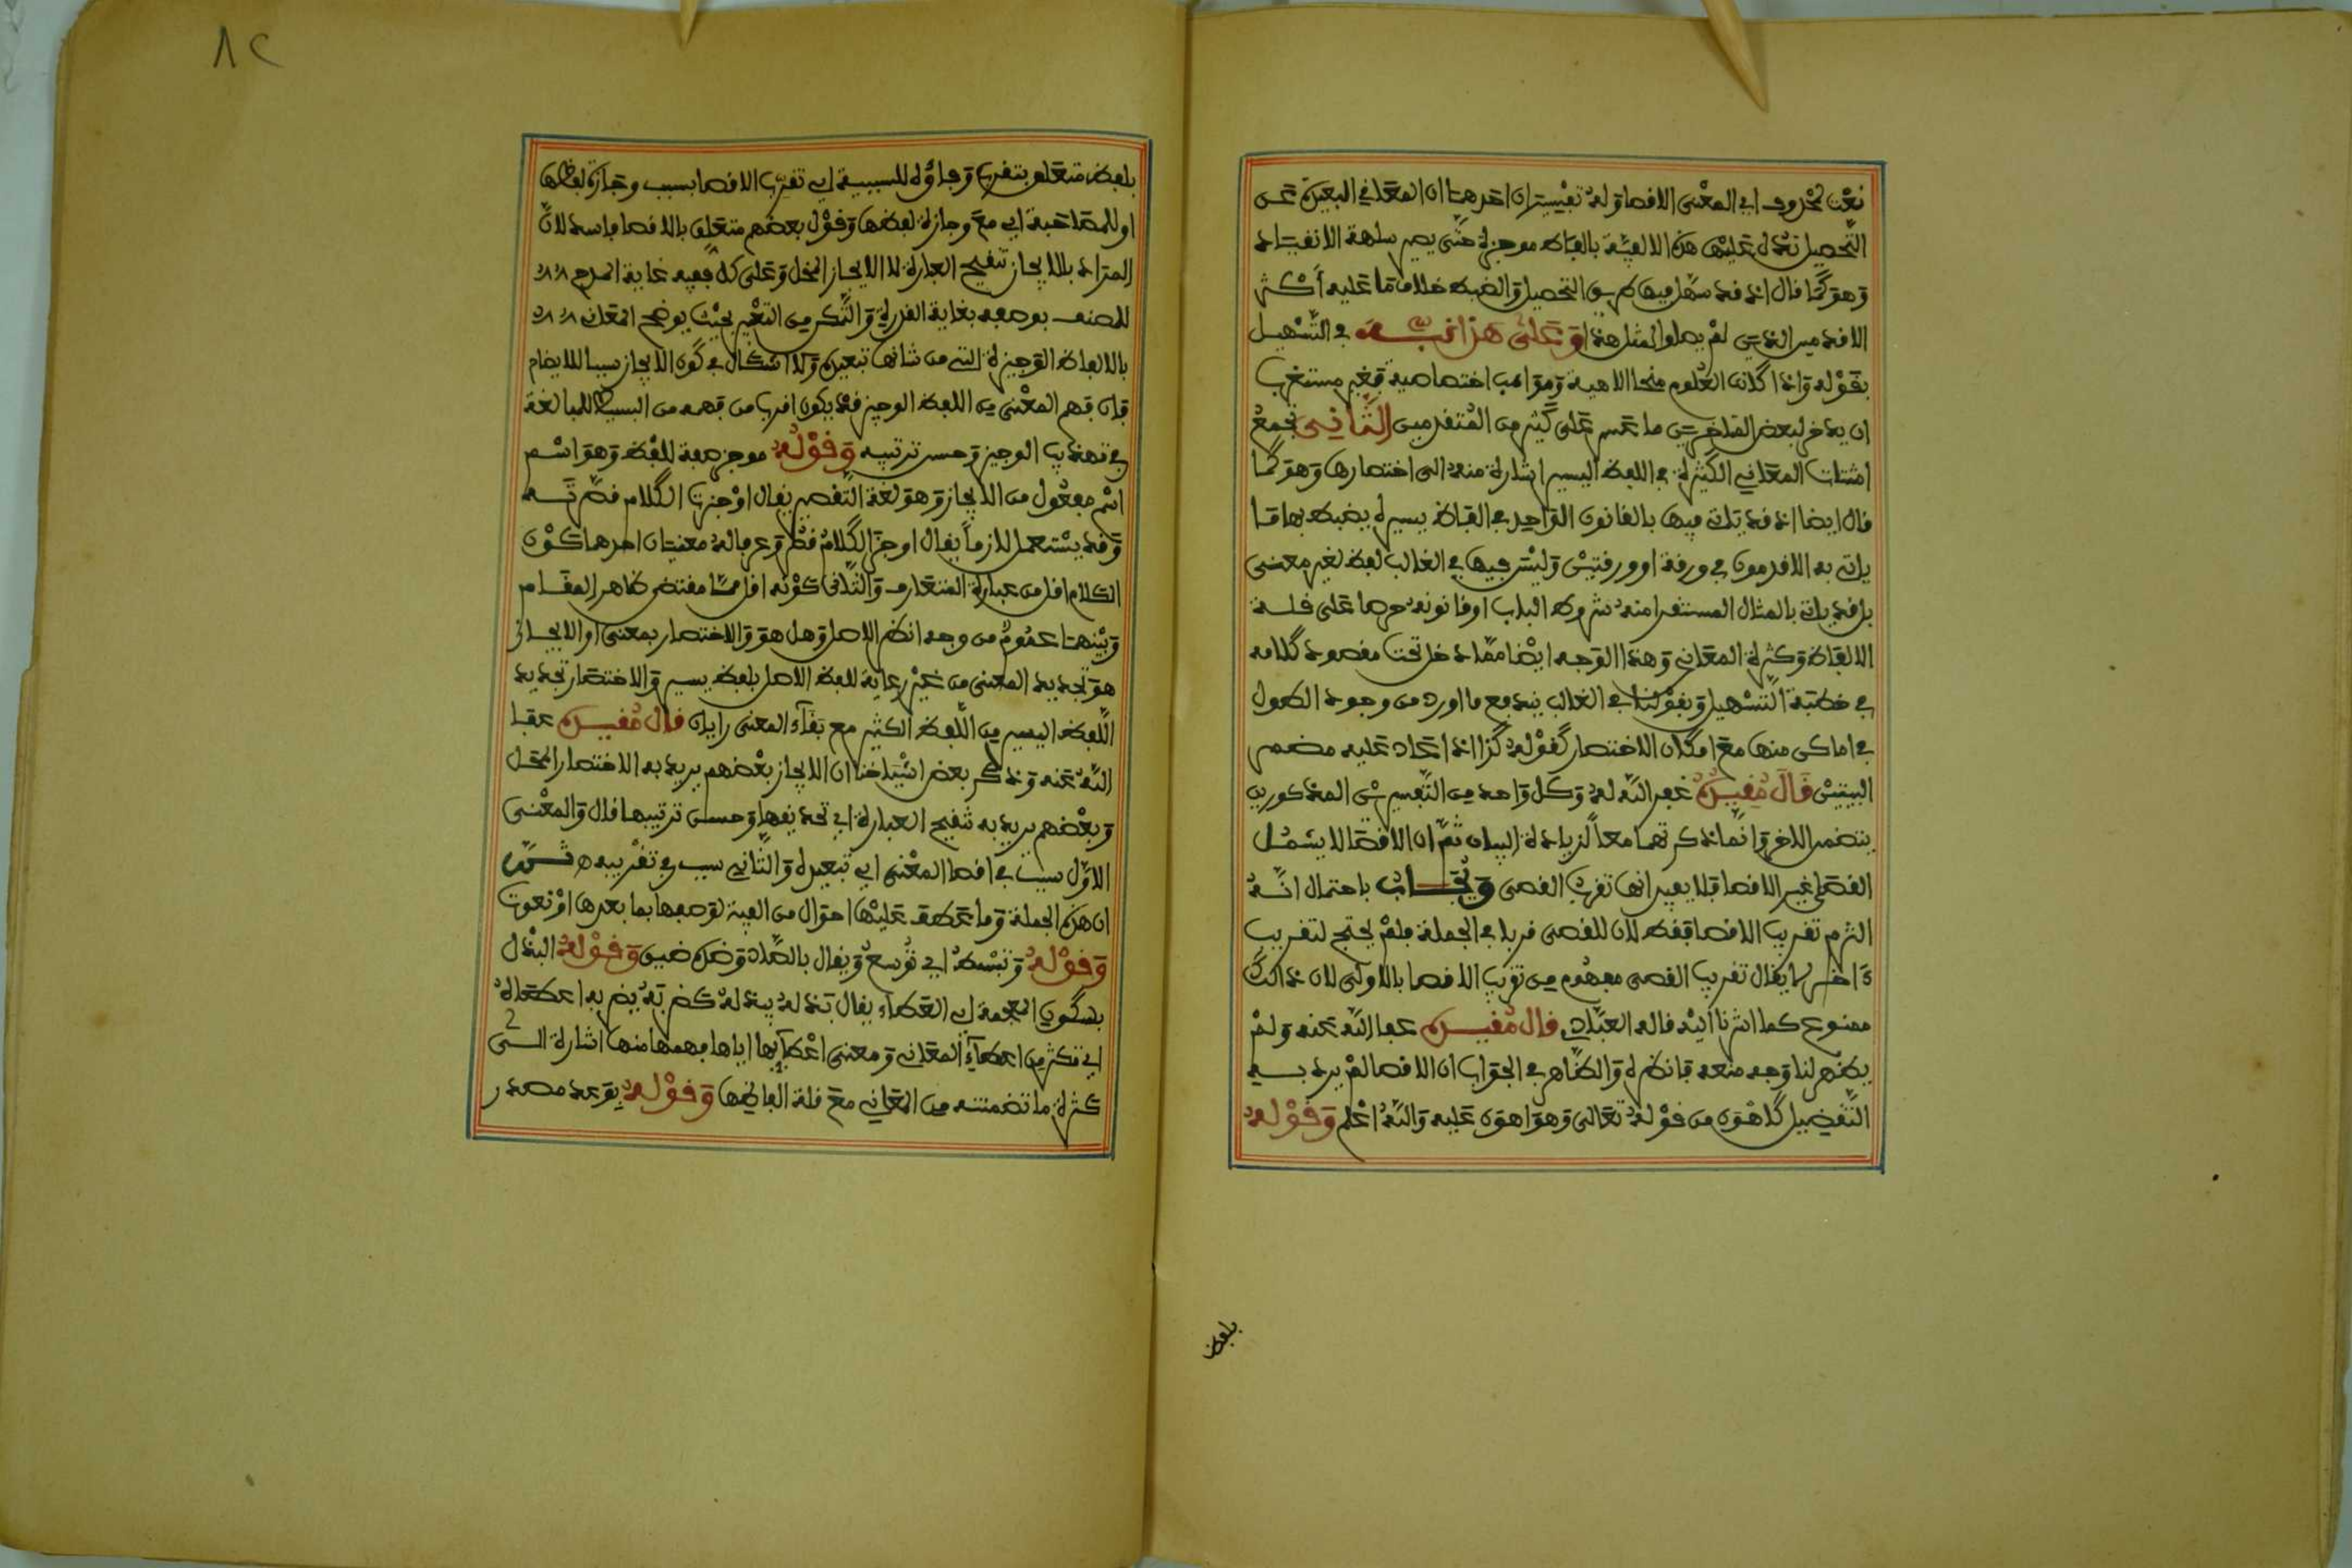 نعت لمحذوف اي المعنى الاقصا وله تفسيران احدهما ان المعاني البعيدة عن
التحصيل تدل عليها هذه الالفية بالفاظ موجزة حتى يصير سلهة الانقياد
وهو كما قال اذ قد سهل فيها طريق التحصيل والضبط خلاف ما عليه أكثر
الاقدمين الذين لم يصلوا لمثل هذا وعلى هذا نبه في التسهيل
بقوله واذا كانت العلوم منحا الاهية ومواهب اختصاصية فغير مستغرب
ان يدخر لبعض المتاخرين ما عسر على كثير من المتقدمين الثاني تجمع
اشتات المعاني الكثيرة في اللفظ اليسير اشارة منه الى اختصارها وهو كما
قال ايضا اذ قد ياتي فيها بالقانون الواحد في الفاظ يسيرة يضبط بها ما
ياتي به الاقدمون في ورقة او ورقتين وليس فيها في الغالب لفظ لغير معنى
بل قد ياتي بالمثال المستقرا منه شروط الباب او قانونه حرصا على قلة
الالفاظ وكثرة المعاني وهذا الوجه ايضا مما دخل تحت مقصود كلامه
في خطبة التسهيل وبقولنا في الغالب يندفع ما اورد من وجود الطول
في اماكن منها مع امكان الاختصار كقوله كذا اذا عاد عليه مضمر
البيتين قال مقيده غفر الله له وكل واحد من التفسيرين المذكورين
يتضمن الاخر وانما ذكرتهما معا لزيادة البيان ثم ان الاقصا لا يشمل
القصي غير الاقصا فلا يفيد انها تقرب القصي ويجاب باحتمال انه
التزم تقريب الاقصا فقط لان للقصي قربا في الجملة فلم يحتج لتقريب
ءاخر لا يقال تقريب القصي مفهوم من تقريب الاقصا بالاولى لان ذالك
ممنوع كما اشرنا اليه قاله العبادي قال مقيده عفا الله عنه ولم
يظهر لنا وجه منعه فانظره والظاهر في الجواب ان الاقصا لم يرد به
التفضيل كاهون من قوله تعالى وهو اهون عليه والله اعلم وقوله
بلفظ
٨٢
بلفظ متعلق بتقرب وباؤه للسببية اي تقرب الاقصا بسبب وجازة لفظها
او للمصاحبة اي مع وجازة لفظها وقول بعضهم متعلق بالاقصا فاسد لان
المراد بالايجاز تنقيح العبارة لا الايجاز المخل وعلى كل ففيه غاية المدح
للمصنف بوصفه بغاية القدرة والتمكن من التعبير بحيث يوضح المعاني
بالالفاظ الوجيزة التي من شانها تبعيده ولا اشكال في كون الايجاز سببا للايضاح
فان فهم المعنى من اللفظ الوجيز قد يكون اقرب من فهمه من البسيط للمبالغة
في تهذيب الوجيز وحسن ترتيبه وقوله موجز صفة للفظ وهو اسم
اسم مفعول من الايجاز وهو لغة التقصير يقال اوجزت الكلام قصرته
وقد يستعمل لازما يقال اوجز الكلام قصر وعرفا له معنيان احدهما كون
الكلام اقل من عبارة المتعارف والثاني كونه اقل مما مقتضى ظاهر المقام
وبينهما عموم من وجه انظر الاصل وهل هو والاختصار بمعنى او الايجاز
هو تجديد المعنى من غير رعاية للفظ الاصل بلفظ يسير والاختصار تجديد
اللفظ اليسير من اللفظ الكثير مع بقاء المعنى رايان قال مقيده عفا
الله عنه وذكر بعض اشياخنا ان الايجاز بعضهم يريد به الاختصار المخل
وبعضهم يريد به تنقيح العبارة اي تهذيبها وحسن ترتيبها قال والمعنى
الاول سبب في اقصا المعنى اي تبعيده والثاني سبب في تقريبه ثم
ان هذه الجملة وما عطف عليها احوال من الفية لوصفها بما بعدها او نعوت
وقوله وتبسط اي توسع ويقال بالصاد وضده ضيق وقوله البذل
بسكون المعجمة اي العطاء يقال بذله يبذله كضربه يضربه اعطاه
اي تكثر من اعطاء المعاني ومعنى اعطائها اياها فهمها منها اشارة الى
كثرة ما تضمنته من المعاني مع قلة الفاظها وقوله بوعد مصدر